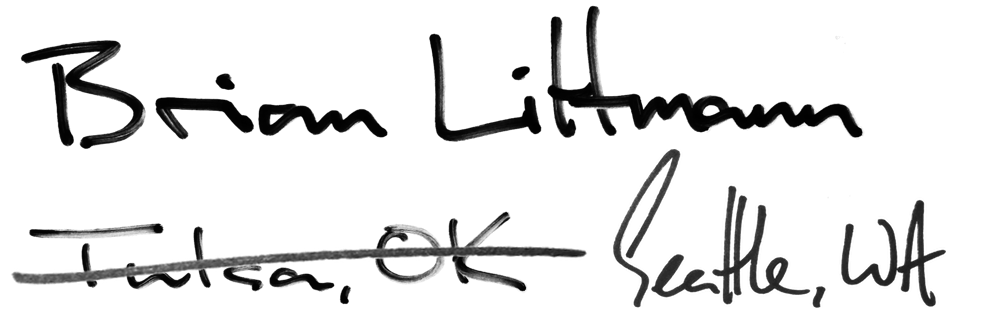 Brian Littmann
Tulsa, OK Seattle, WA